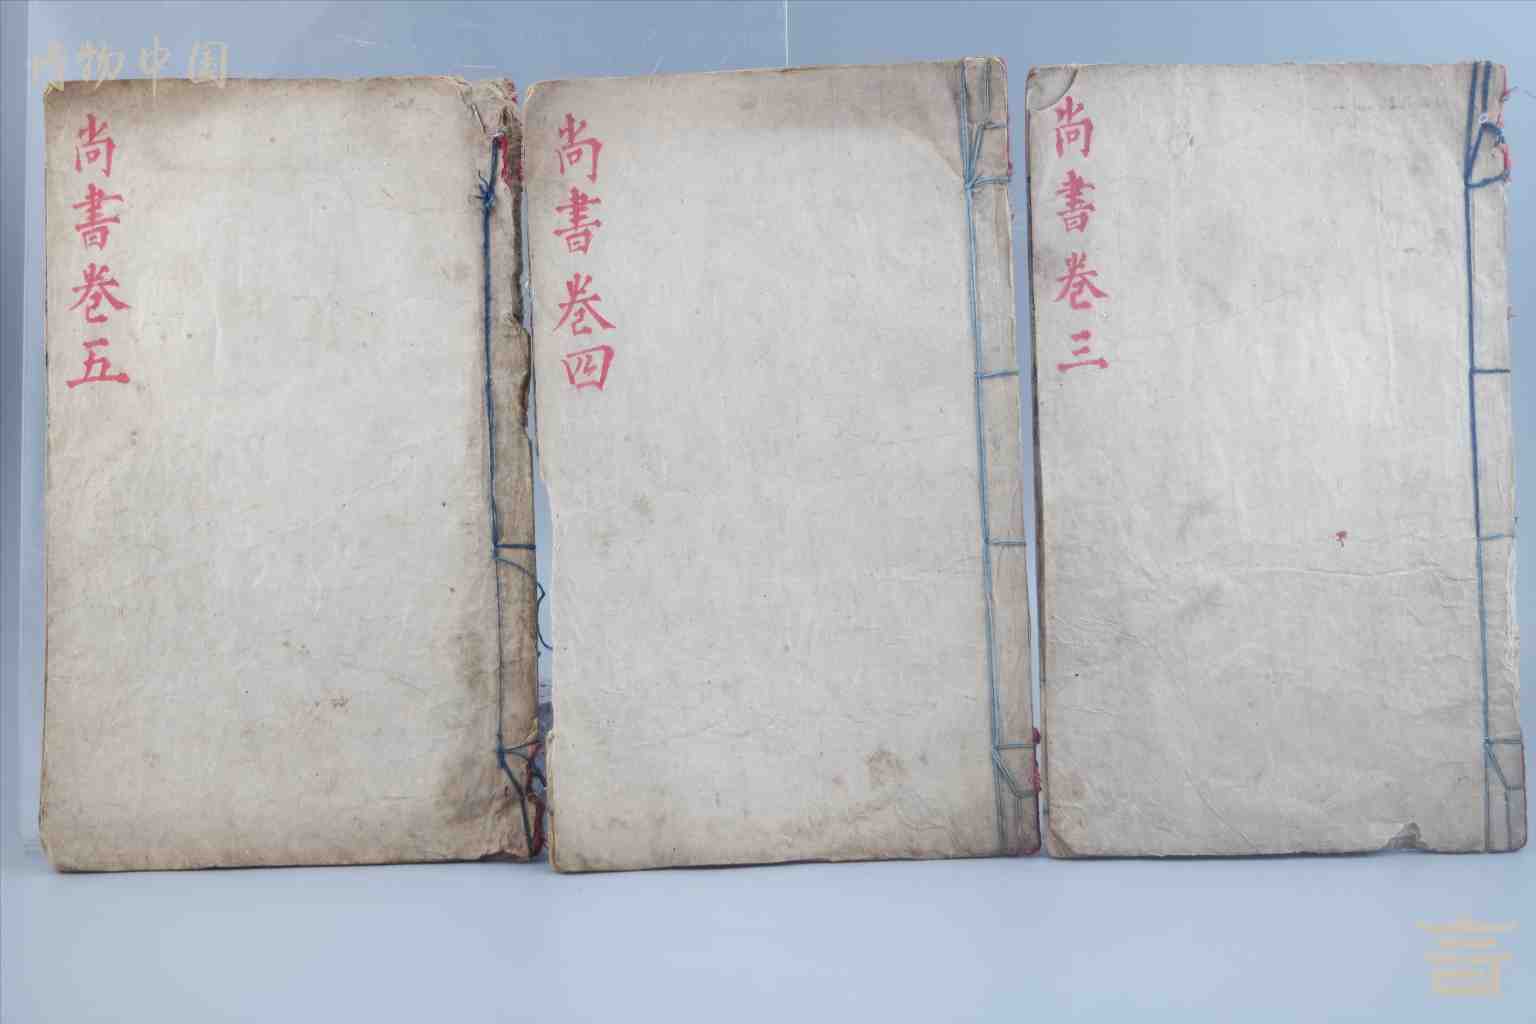 博物中国
尚書卷三
尚書卷四
尚書卷五